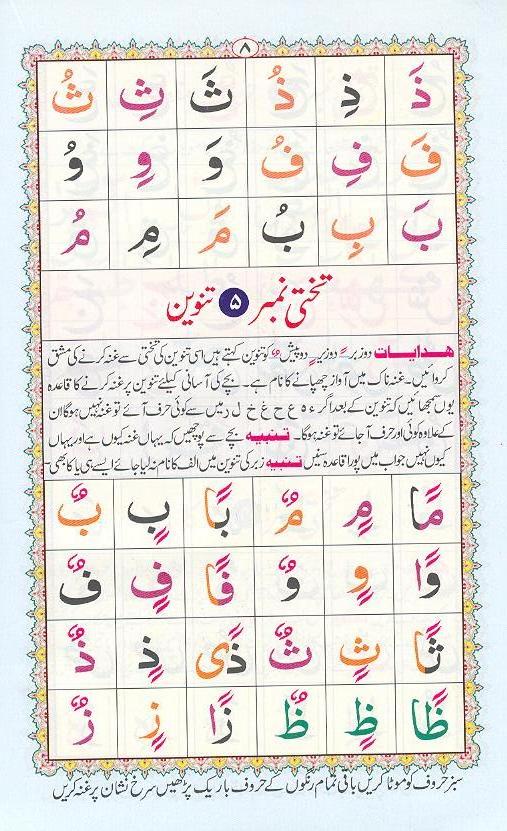 ۸
ذَ ذِ ذُ ثَ ثِ ثُ
فَ فِ فُ وَ وِ وُ
بَ بِ بُ مَ مِ مُ
تختی نمبر ۵ تنوین
ھدایات دوزبر ً دوزیر ٍ دوپیش ٌ کو تنوین کہتے ہیں اسی تنوین کی تختی سے غنہ کرنے کی مشق
کروائیں۔ غنہ ناک میں آواز چھپانے کا نام ہے۔ بچے کی آسانی کیلئے تنوین پر غنہ کرنے کا قاعدہ
یوں سمجھائیں کہ تنوین کے بعد اگر ء ہ ع ح غ خ ل ر میں سے کوئی حرف آئے تو غنہ نہیں ہوگا ان
کے علاوہ کوئی اور حرف آجائے تو غنہ ہوگا۔ تنبیہ بچے سے پوچھیں کہ یہاں غنہ کیوں ہے اور یہاں
کیوں نہیں جواب میں پورا قاعدہ سنیں تنبیہ زبر کی تنوین میں الف کا نام نہ لیا جائے ایسے ہی یا کا بھی
مًا مٍ مٌ بًا بٍ بٌ
وًا وٍ وٌ فًا فٍ فٌ
ثًا ثٍ ثٌ ذًی ذٍ ذٌ
ظًا ظٍ ظٌ زًا زٍ زٌ
سبز حروف کو موٹا کریں باقی تمام رنگوں کے حروف باریک پڑھیں سرخ نشان پر غنہ کریں